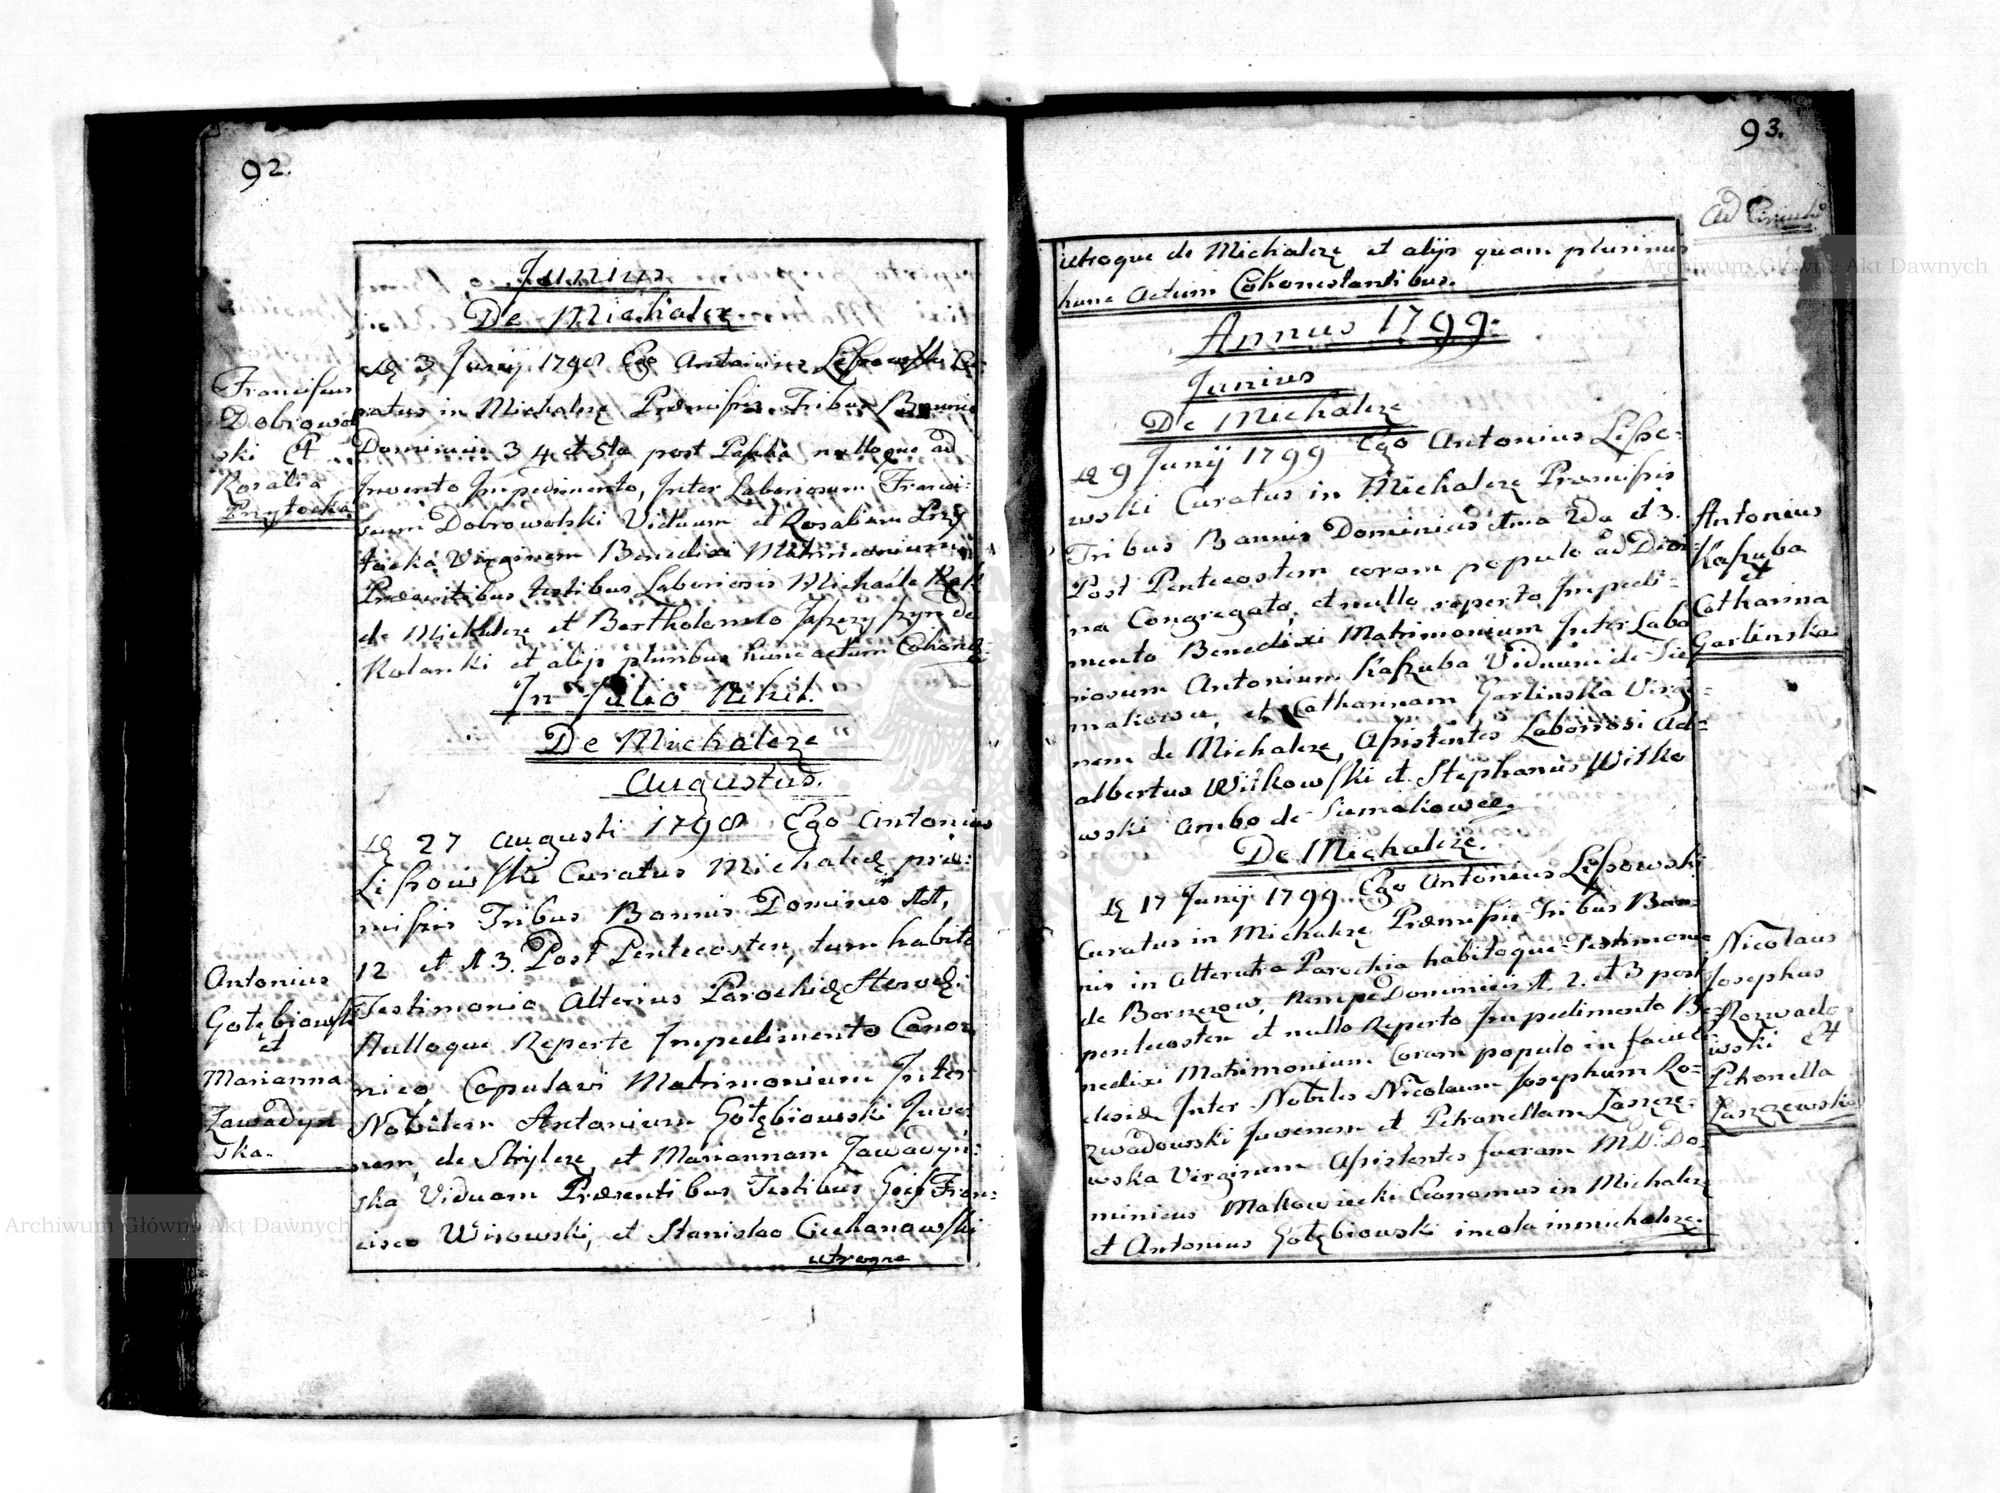 92.
Junius
De Michalcze
Franciscus
Dobrowol
ski et
Rosalia
Przytocka
Dę 3 Junij 1798 Ego Antonius Lissowski Cu-
ratus in Michalcze Præmissis Tribus Bannis
Dominicis 3 4 et 5ta post Pascha nulloque ad
Invento Impedimento, Inter Laboriosum Franci:
scum Dobrowolski Viduum et Rosaliam Przy
tocka Virginem Benedixi Matrimonium
Præsentibus testibus Laboriosis Michaele
de Michalcze et Bartholomeo de
et alijs pluribus hunc actum Cohones:
In Julio Nihil.
De Michalcze
Augustus.
Dę 27 Augusti 1798 Ego Antonius
Lissowski Curatus Michalcę præ:
missis Tribus Bannis Dominicis
12 et 13. Post Pentecosten, tum habito
Testimonio Alterius Parochię
Nulloque Reperto Impedimento Cano:
nico, Copulavi Matrimonium Inter
Nobilem Antonium Gołębiowski Juve:
nem, de Strylcze, et Mariannam Zawadyń:
ska Viduam Præsentibus Testibus Fran:
cisco Wisowski, et Stanislao Ciechanowski
utroque
Antonius
Gołębiowski
et
Marianna
Zawadyń
ska.
93.
utroque de Michalcze et alijs quam plurimis
hunc Actum Cohonestantibus.
Annus 1799.
Junius
De Michalcze
Dę 9 Junij 1799 Ego Antonius Lisso:
wski Curatus in Michalcze Præmissis
Tribus Bannis Dominicis 1ma 2da et 3.
Post Pentecostem coram populo ad Divi:
na Congregato, et nullo reperto Impedi:
mento Benedixi Matrimonium Inter Labo
riosum Antonium Kaszuba Viduum de Sie
makowce, et Catharinam Garlinska Virgi:
nem de Michalcze, Assistentes Laboriosi Ad:
albertus Witkowski et Stephanus Witko
wski Ambo de Siemakowce.
Antonius
Kaszuba
et
Catharina
Garlinska
De Michalcze.
Dę 17 Junij 1799 Ego Antonius Lissowski
Curatus in Michalcze Præmissis Tribus Ban:
nis in Alterutra Parochia habitoque Testimonio
de Bornczow, nempe Dominicis 1. 2. et 3 post
pentecosten et nullo Reperto Impedimento Be
nedixi Matrimonium Coram populo in facie
clesiæ Inter Nobiles Nicolaum Josephum Ro:
zwadowski Juvenem et Petronellam Laszcze:
wska Virginem Assistentes fuerant M.D. Do:
minicus Makowiecki Economus in Michalcze
et Antonius Gołębiowski incola in Michalcze.
Nicolaus
Josephus
Rozwado
wski et
Petronella
Laszczewska
Archiwum Główne Akt Dawnych
Archiwum Główne Akt Dawnych